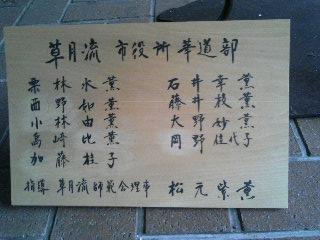 草月流 市役所 華道部
栗林水薫 石井幸薫
西野如薫 藤井枝薫
小林由薫 大野妙薫
高崎比薫 岡野佳代子
加藤桂子
指導 草月流師範会理事 松元紫薫